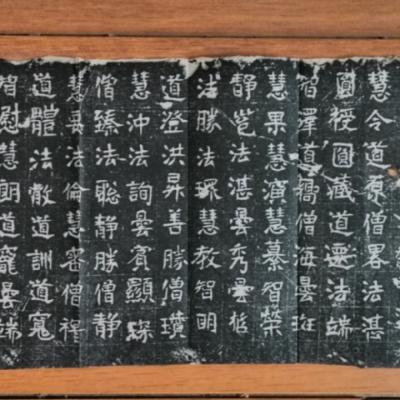 慧令道原僧畧法湛
圓授圓藏道選法端
智澤道僧海曇
慧果慧演慧智榮
靜法湛曇秀曇
法勝法琛慧教智明
道澄洪昇善勝僧瓚
慧沖法詢曇賓顯琛
僧臻法聡靜勝僧靜
慧法倫慧僧
道體法敷道訓道寬
智慰慧朗道寵曇端